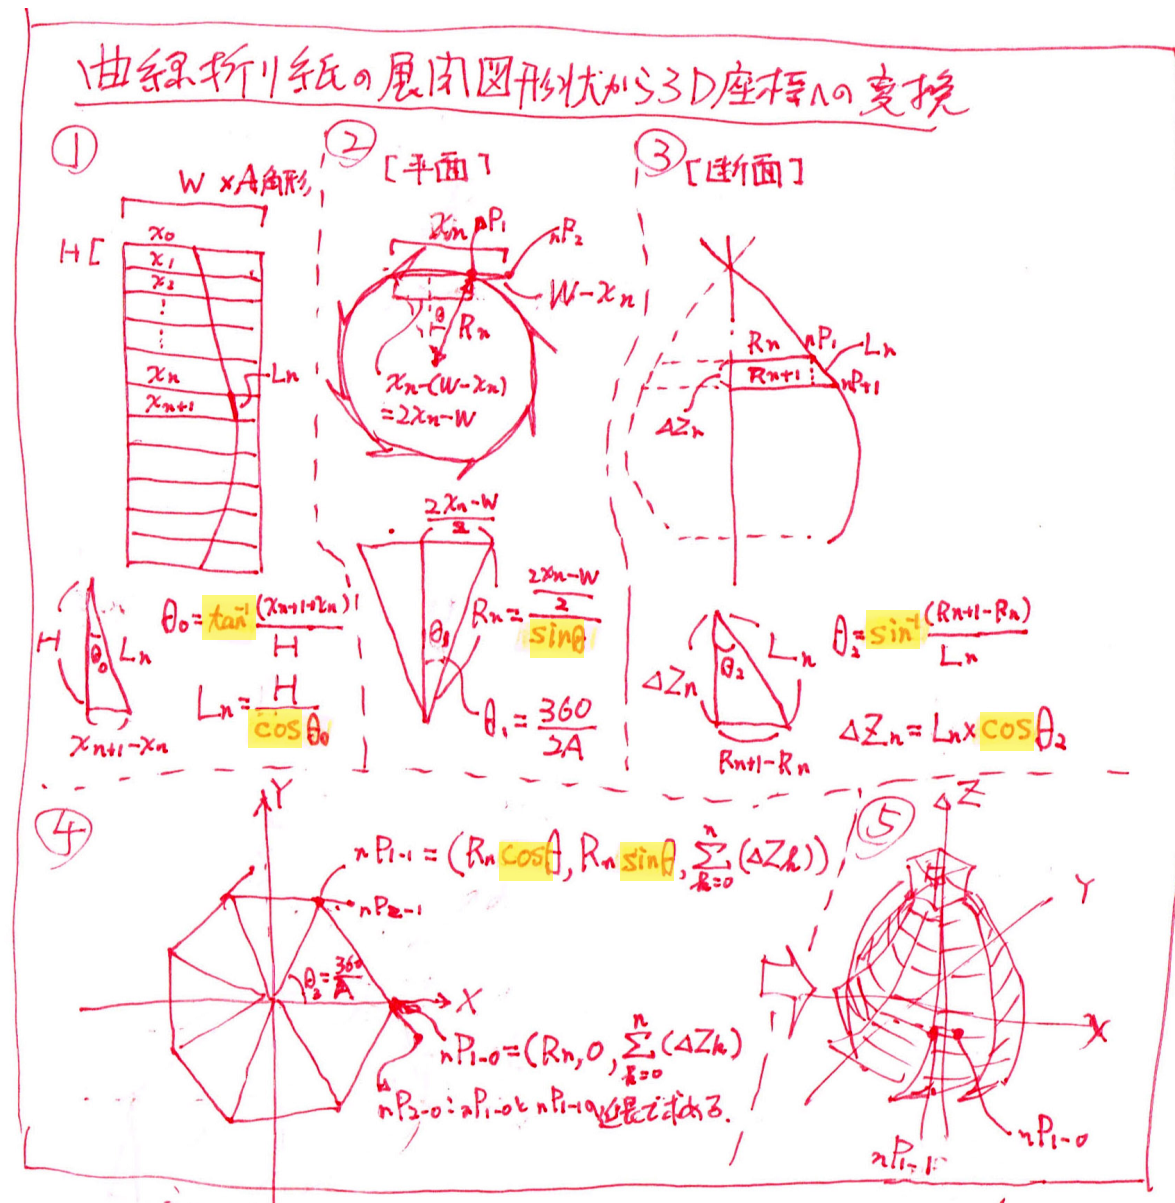 曲線折り紙の展開図形状から3D座標への変換
①
W ×A角形
H[
x₀
x₁
x₂
⋮
⋮
xₙ
xₙ₊₁
Lₙ
H
θ₀
Lₙ
xₙ₊₁-xₙ
θ₀=tan⁻¹(xₙ₊₁+xₙ)/H
Lₙ=H/cosθ₀
②
[平面]
xₙ
nP₁
nP₂
W-xₙ
θ
Rₙ
xₙ-(W-xₙ)
=2xₙ-W
(2xₙ-W)/2
θ₁
Rₙ=((2xₙ-W)/2)/sinθ
θ₁=360/2A
③
[断面]
Rₙ
nP₁
Lₙ
Rₙ₊₁
nP+1
ΔZₙ
ΔZₙ
θ₂
Lₙ
Rₙ₊₁-Rₙ
θ₂=sin⁻¹(Rₙ₊₁-Rₙ)/Lₙ
ΔZₙ=Lₙ×cosθ₂
④
Y
nP₁₋₁=(Rₙcosθ, Rₙsinθ, Σⁿₖ₌₀(ΔZₖ))
nP₂₋₁
θ₂=360/A
X
nP₁₋₀=(Rₙ,0,Σⁿₖ₌₀(ΔZₖ)
nP₂₋₀:nP₁₋₀とnP₁₋₁の延長で求める.
⑤
Z
Y
X
nP₁₋₀
nP₁₋₁